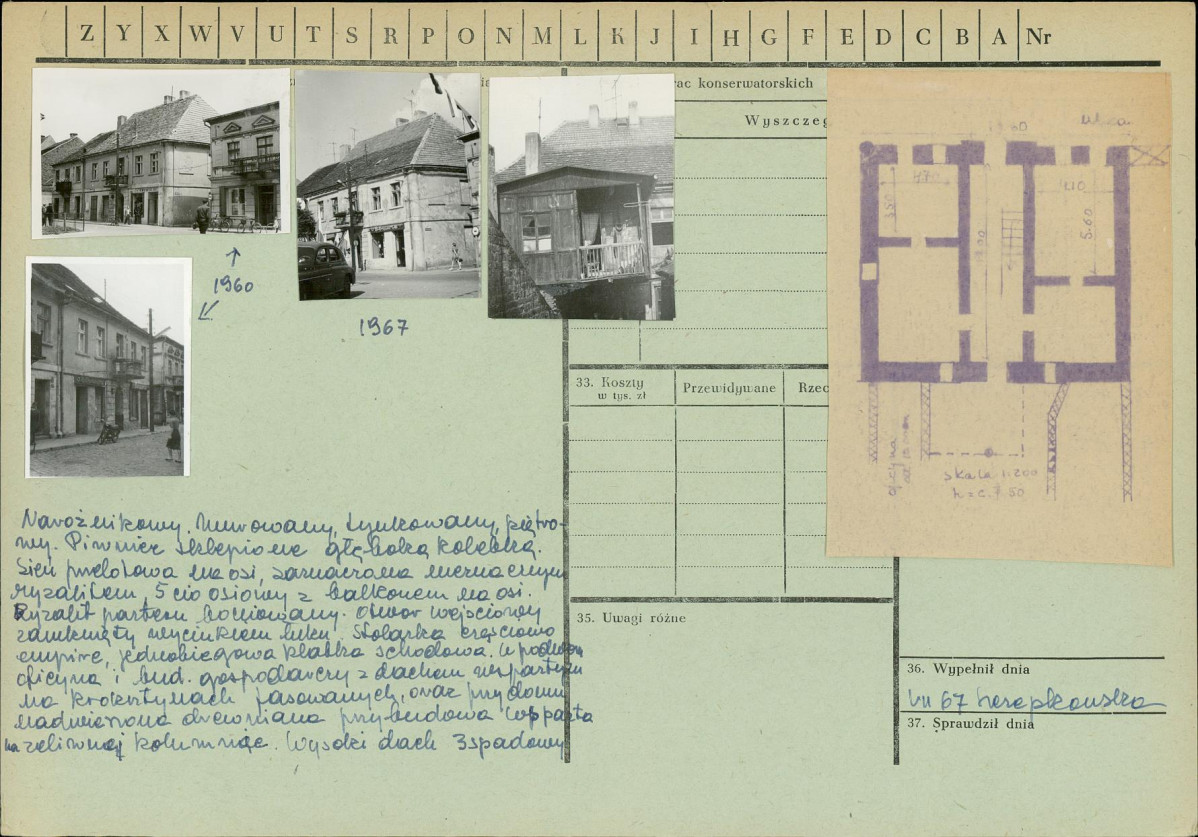 Z Y X W V U T S R P O N M L K J I H G F E D C B A Nr
rac konserwatorskich
Wyszczeg
1960
1967
33. Koszty
w tys. zł
Przewidywane
Rzec
ulica
4.70
5.60
oficyna
skala 1:200
h = c. 7.50
Narożnikowy. Murowany, tynkowany, piętro-
wy. Piwnice sklepione głęboką kolebką.
Sień przelotowa na osi, zaznaczona nieznacznym
ryzalitem, 5 cio osiowy z balkonem na osi.
Ryzalit parteru boniowany. Otwór wejściowy
zamknięty wycinkiem łuku. Stolarka częściowo
empire, jednobiegowa klatka schodowa. W podwórzu
oficyna i bud. gospodarczy z dachem wspartym
na kroksztynach fasowanych, oraz przy domu
nadwieszona drewniana przybudowa wsparta
na żeliwnej kolumnie. Wysoki dach 3spadowy
35. Uwagi różne
36. Wypełnił dnia
VII 67
37. Sprawdził dnia